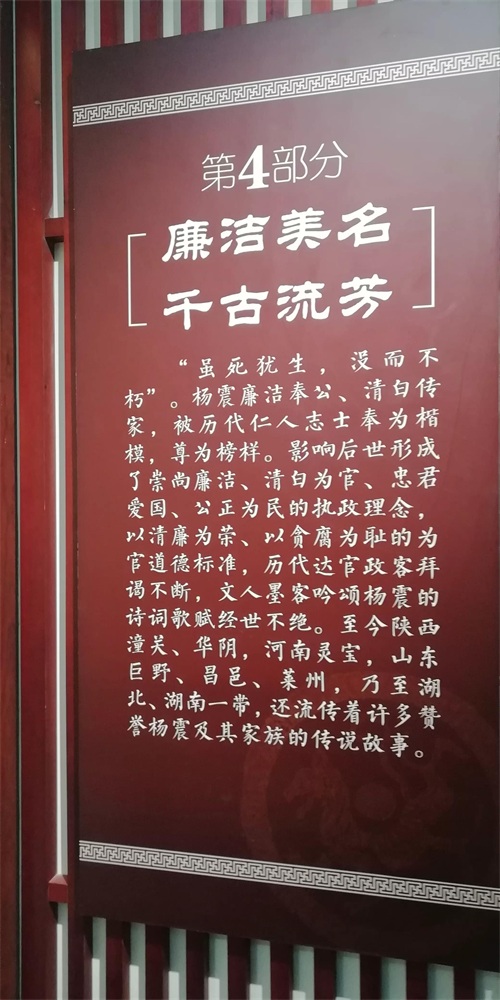 第4部分
廉洁美名
千古流芳
“虽死犹生，没而不
朽”。杨震廉洁奉公、清白传
家，被历代仁人志士奉为楷
模，尊为榜样。影响后世形成
了崇尚廉洁、清白为官、忠君
爱国、公正为民的执政理念，
以清廉为荣、以贪腐为耻的为
官道德标准，历代达官政客拜
谒不断，文人墨客吟颂杨震的
诗词歌赋经世不绝。至今陕西
潼关、华阴，河南灵宝，山东
巨野、昌邑、莱州，乃至湖
北、湖南一带，还流传着许多赞
誉杨震及其家族的传说故事。